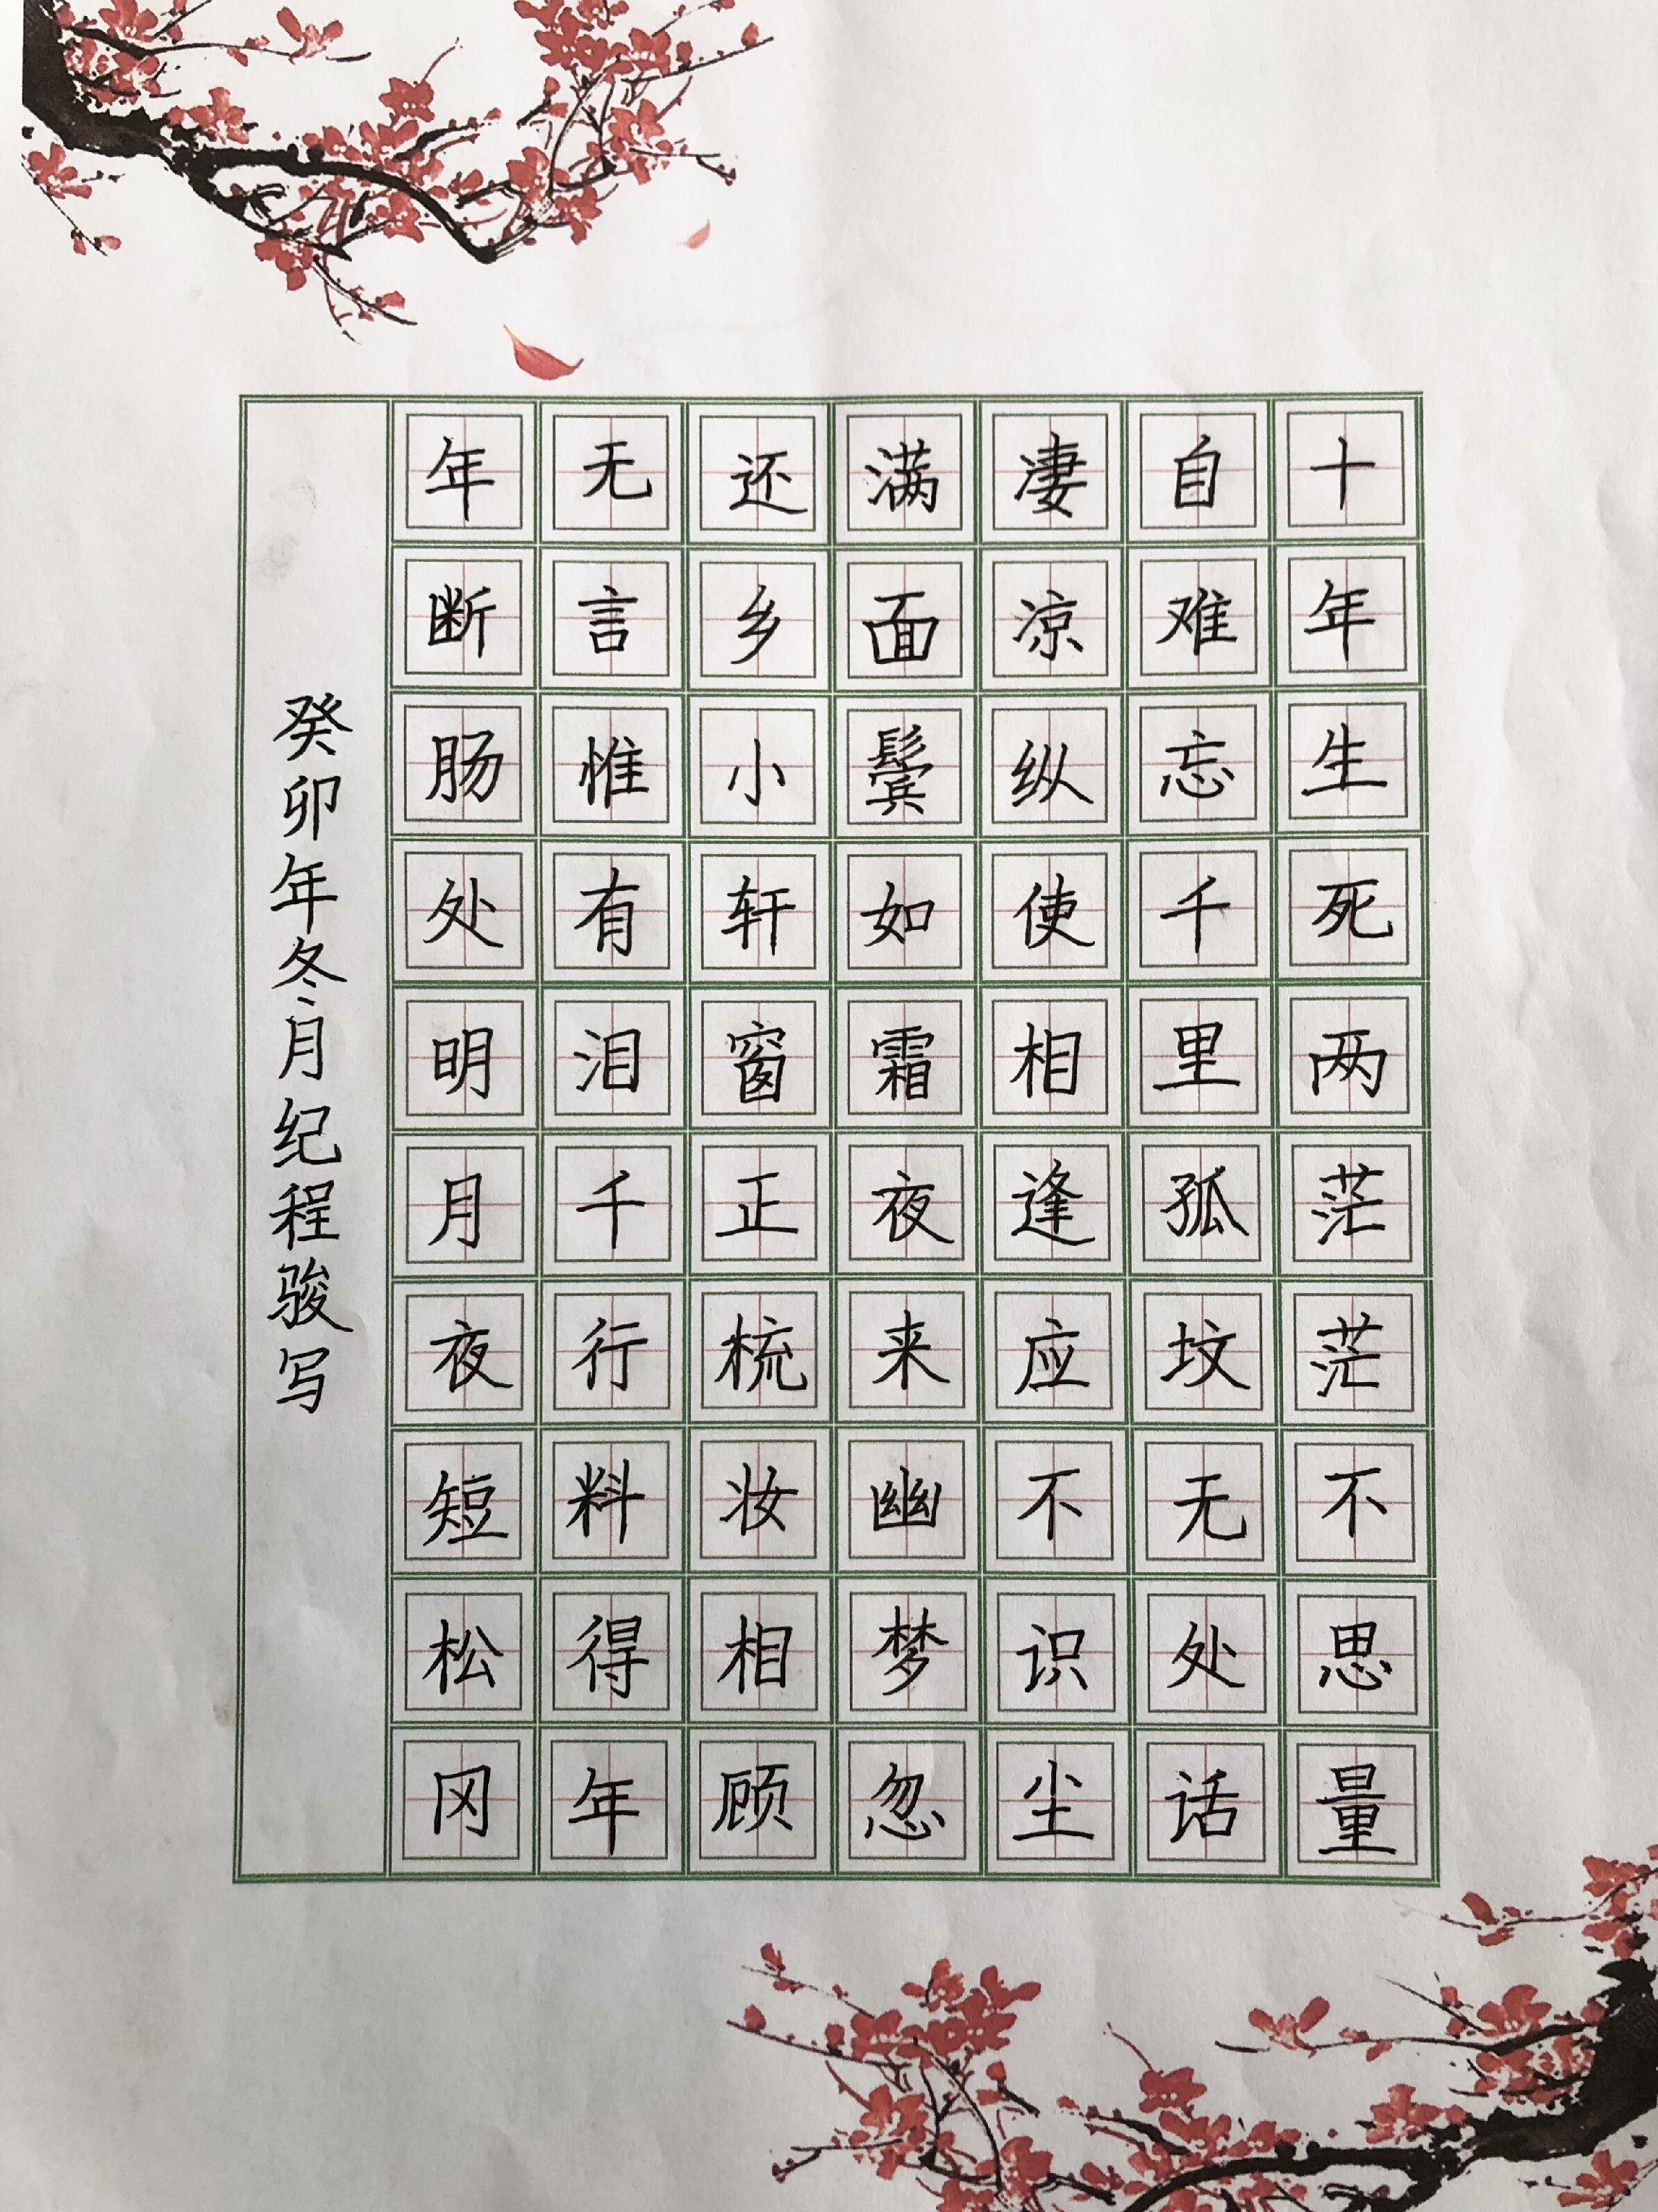 十年生死两茫茫不思量
自难忘千里孤坟无处话
凄凉纵使相逢应不识尘
满面鬓如霜夜来幽梦忽
还乡小轩窗正梳妆相顾
无言惟有泪千行料得年
年断肠处明月夜短松冈
癸卯年冬月纪程骏写